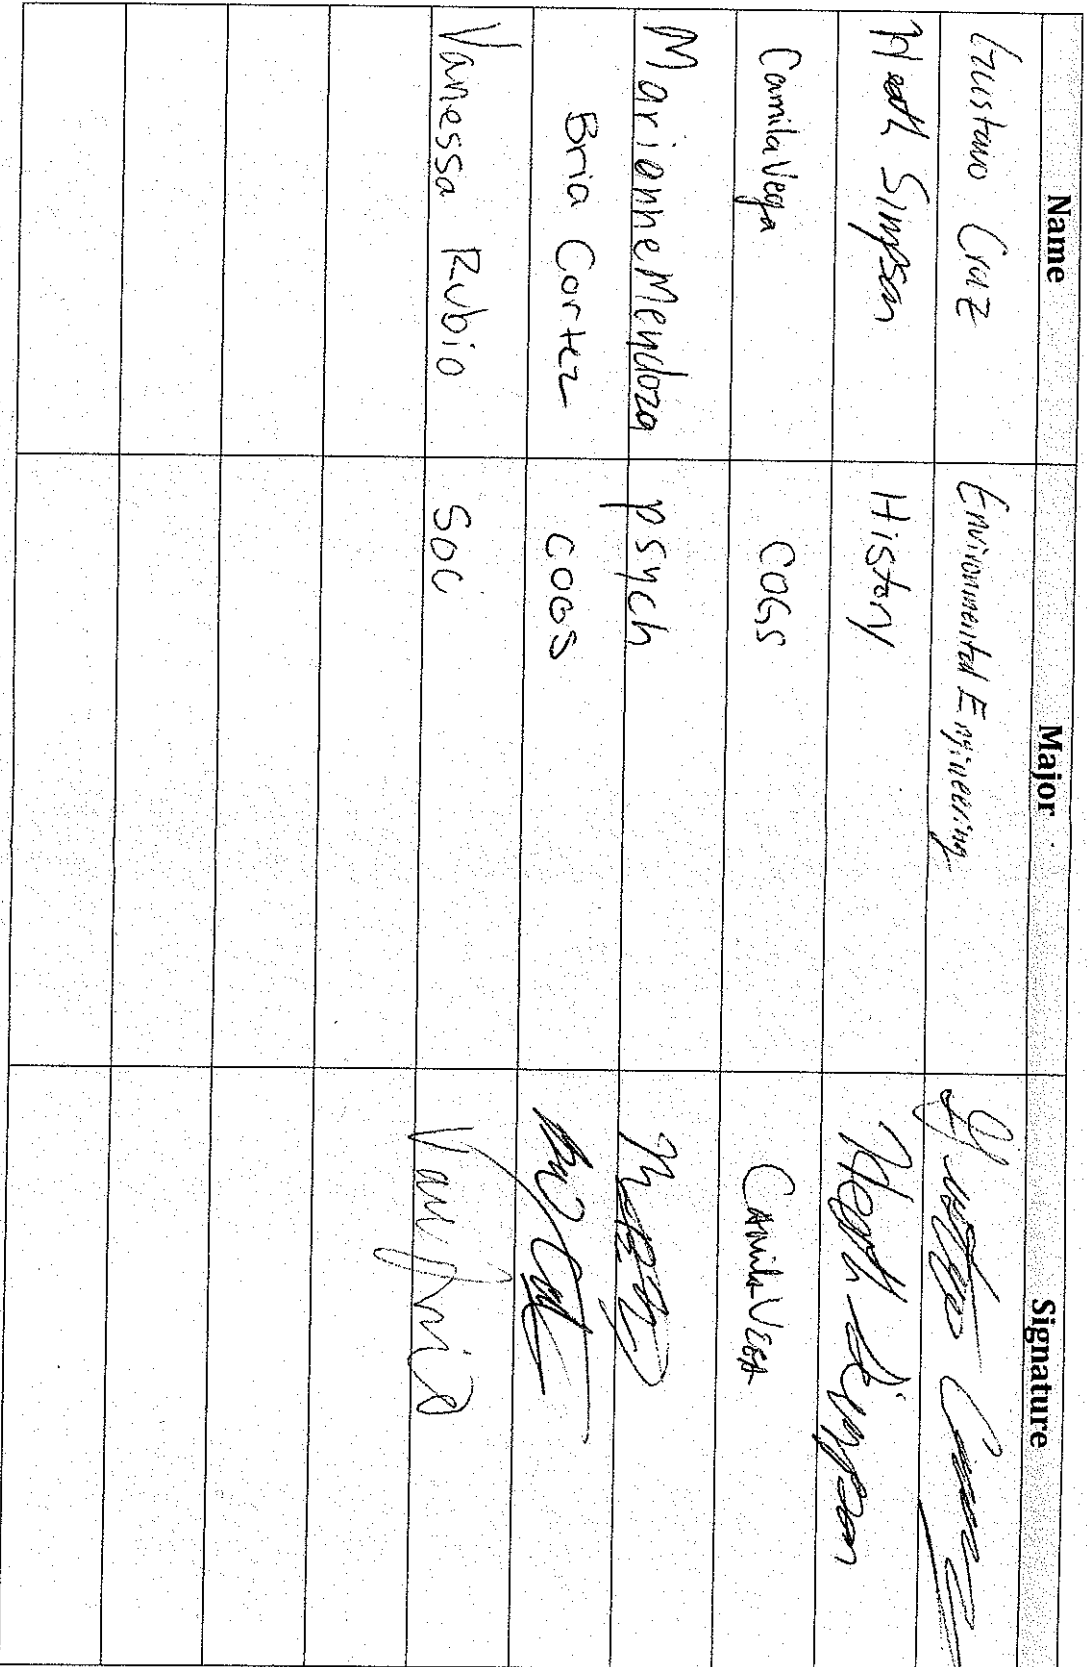 Name Major Signature
Gustavo Cruz Environmental Engineering Gustavo Cruz
Heath Simpson History Heath Simpson
Camila Vega COGS Camila VEGA
Marianne Mendoza psych
Bria Cortez COGS
Vanessa Rubio Soc